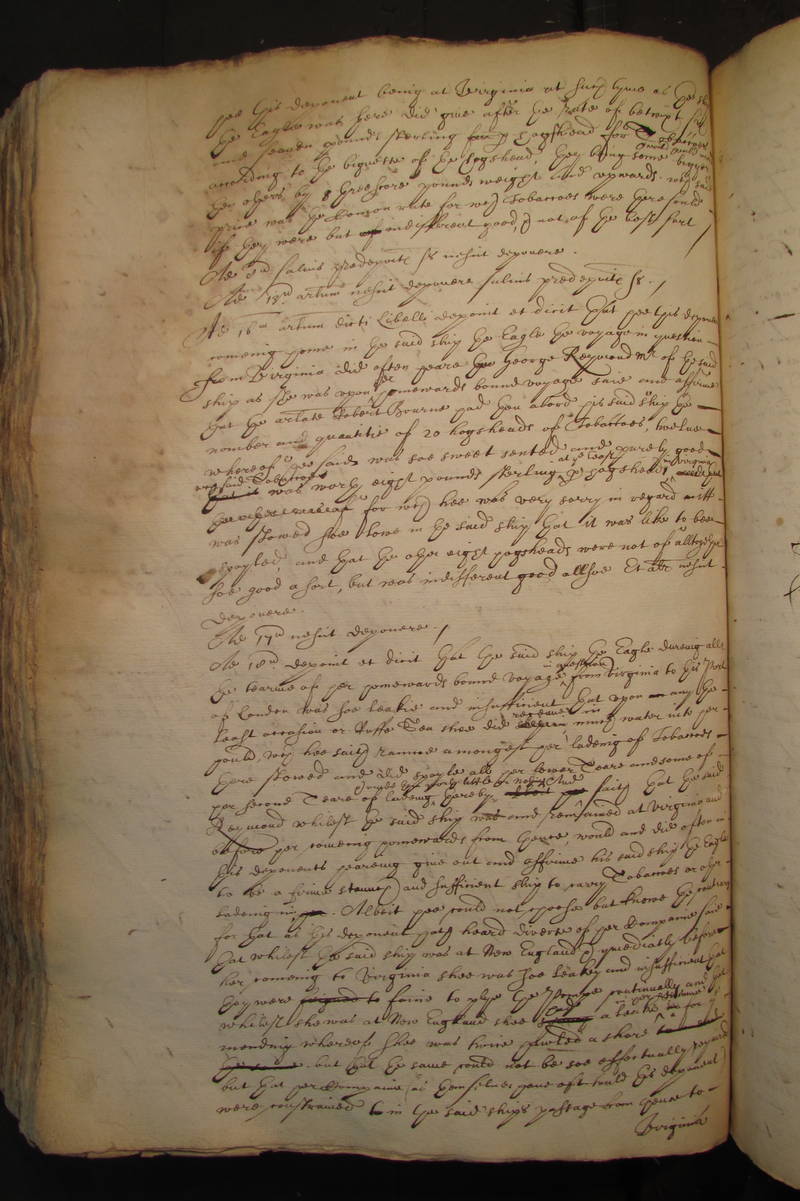 hee this deponent being at Virginia at such tyme as the shipp
the Eagle was there did give after the rate of betwixt six
and seaven pounds sterling per hogshead for
according to the bignesse of the hogshead, they being some bigger
then others by threescore pounds weight and upwards. which said
price was the Common rate for which Tobaccoes were there sould
if they were but indifferent good, and not of the best sort
Ad salvis predepositis nescit deponere.
Ad 15um artum nescit deponere salvis predepositis
Ad 16um artum dicti libelli deponit et dicit That hee this deponent
coming home in the said ship the Eagle the voyage in question
from Virginia did often heare George Reymond Mr of the said
ship as she was upon her homewards bound voyage saie and affirme
that the arlate Robert Bourne had then aboard his said ship the
number and quantitie of 20 hogsheads of Tobaccoes, twelve
whereof hee said was soe sweet sented and purely good
said Tobaccoes was worth eight pounds sterling at the least per hogshead in Virginia
for which hee was very sorry in regard
was stowed soe lowe in the said ship that it was like to bee
spoyled, and that the other eight hogsheads were not of alltogether
soe good a sort, but was indifferent good allsoe Et alr nescit
deponere.
Ad 17um nescit deponere.
Ad 18um deponit et dicit That the said ship the Eagle dureing all
the tearme of her homewards bound voyage in question from Virginia to this Port
of London was soe leakie and insufficient that upon any the
least occasion or ruffe Sea shee did receave in much water into her
hould, which hee saith ranne amongest her ladeing of Tobaccoes
there stowed and did spoyle all her lower Teare and some of
her second Teare of ladeing thereby And saith that the said
Reymond whilest the said ship was and remained at Virginia and
before her coming homewards from thence, would and did often in
this deponents heareing give out and affirme his said ship the Eagle
to be a firme staunch and sufficient ship to carry Tobaccoes or other
ladeing in. Albeit hee could not choose but knowe the contrary
for that as this deponent hath heard diverse of her Companie saie
that whilest the said ship was at New England immediatly before
her coming to Virginia shee was soe leaky and insufficient that
they were faine to plye the Pumpe continually and that
whilest she was at New England shee had a leake for
mending whereof shee was hawled a shore
but that the same could not be soe effectually repaired
but that her Companie (as themselves have oft tould this deponent)
were constrained in the said ships passage from thence to
Virginia